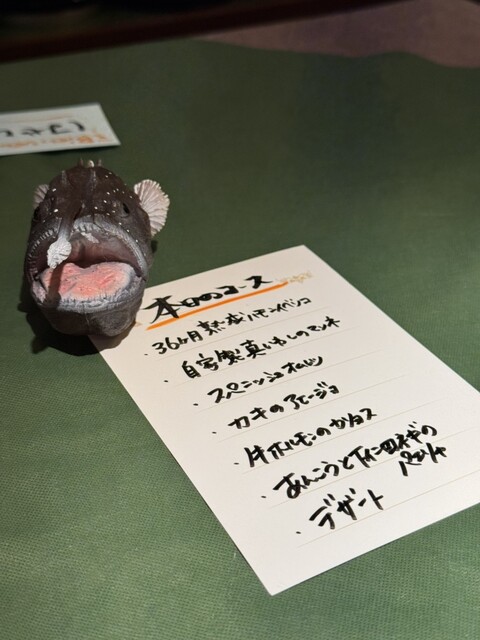 本日のコース
・36ヶ月熟成ハモンイベリコ
・自家製真いわしのマリネ
・スペニッシュオムレツ
・カキのアヒージョ
・牛ホルモンのカジョス
・あんこうと下仁田ネギの
パエリヤ
・デザート